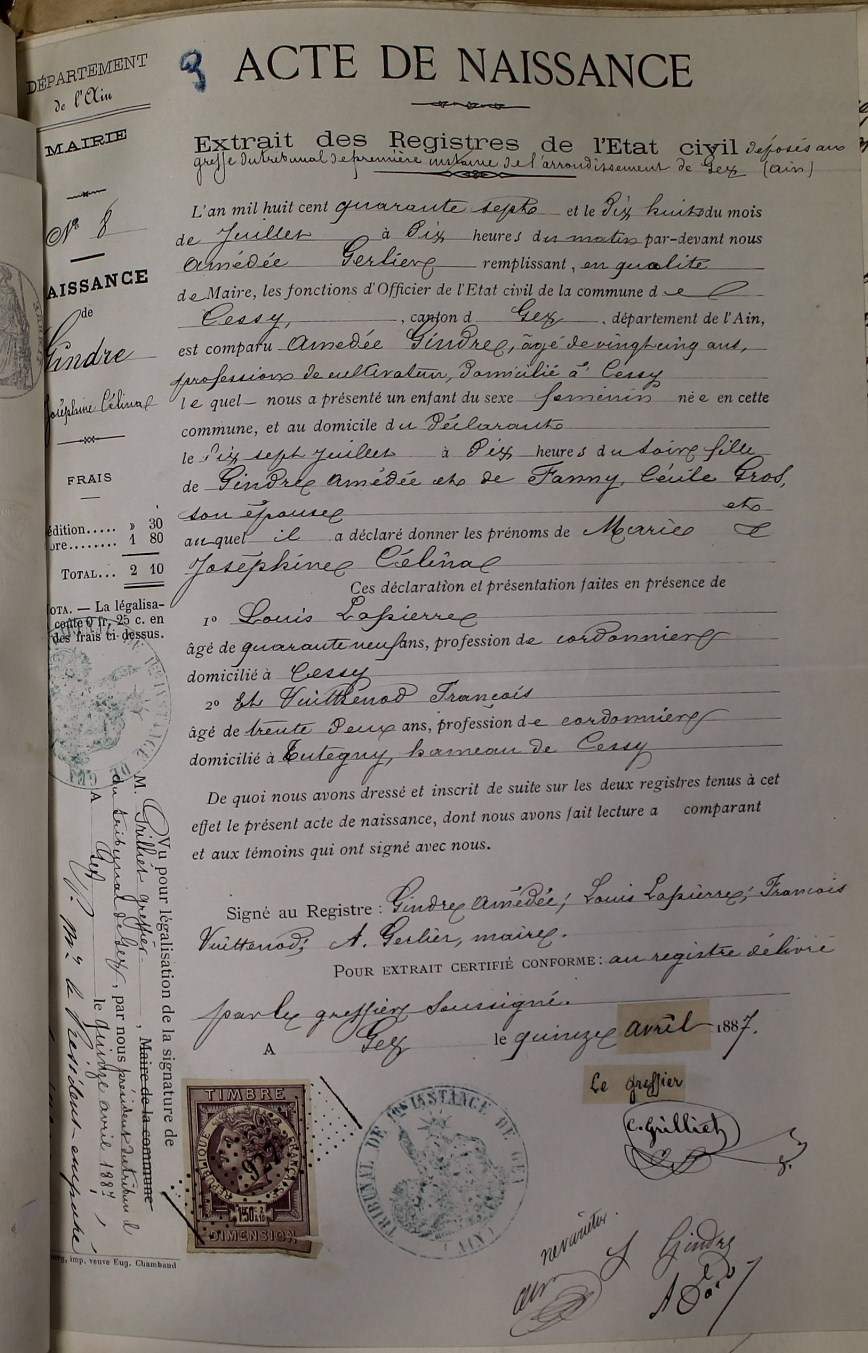 DÉPARTEMENT
de l'Ain
MAIRIE
N° 8
AISSANCE
de
Gindre
Joséphine Célina
FRAIS
édition..... » 30
bre........ 1 80
TOTAL... 2 10
OTA. — La légalisa-
cente 0 fr, 25 c. en
des frais ci-dessus.
Vu pour légalisation de la signature de
M. Grillict greffier, Maire de la commune
du tribunal de Gex, par nous président du tribunal
A Gex le quinze avril 1887,
P. Mr le Président empêché
rg, imp. veuve Eug. Chambaud
9
ACTE DE NAISSANCE
Extrait des Registres de l'Etat civil déposés au
greffe du tribunal de première instance de l'arrondissement de Gex (Ain)
L'an mil huit cent quarante sept et le dix huit du mois
de Juillet à dix heures du matin par-devant nous
Amédée Gerlier remplissant, en qualité
de Maire, les fonctions d'Officier de l'Etat civil de la commune de
Cessy, , canton d Gex , département de l'Ain,
est comparu Amédée Gindre, âgé de vingt cinq ans,
profession de cultivateur, domicilié à Cessy
lequel nous a présenté un enfant du sexe féminin née en cette
commune, et au domicile du déclarant
le dix sept juillet à dix heures du soir, fille
de Gindre Amédée et de Fanny, Cécile Gros,
son épouse et
auquel il a déclaré donner les prénoms de Marie
Joséphine Célina
Ces déclaration et présentation faites en présence de
1° Louis Lapierre
âgé de quarante neuf ans, profession de cordonnier
domicilié à Cessy
2° Et Vuittenod François
âgé de trente deux ans, profession de cordonnier
domicilié à Tutegny, hameau de Cessy
De quoi nous avons dressé et inscrit de suite sur les deux registres tenus à cet
effet le présent acte de naissance, dont nous avons fait lecture a comparant
et aux témoins qui ont signé avec nous.
Signé au Registre : Gindre Amédée; Louis Lapierre; François
Vuittenod; A. Gerlier, maire.
POUR EXTRAIT CERTIFIÉ CONFORME : au registre délivré
par le greffier soussigné.
A Gex le quinze avril 1887.
Le greffier
C. Grillict
TIMBRE
RÉPUBLIQUE FRANÇAISE
DIMENSION
TRIBUNAL DE 1re INSTANCE DE GEX
(AIN)
ne varietur
Gindre